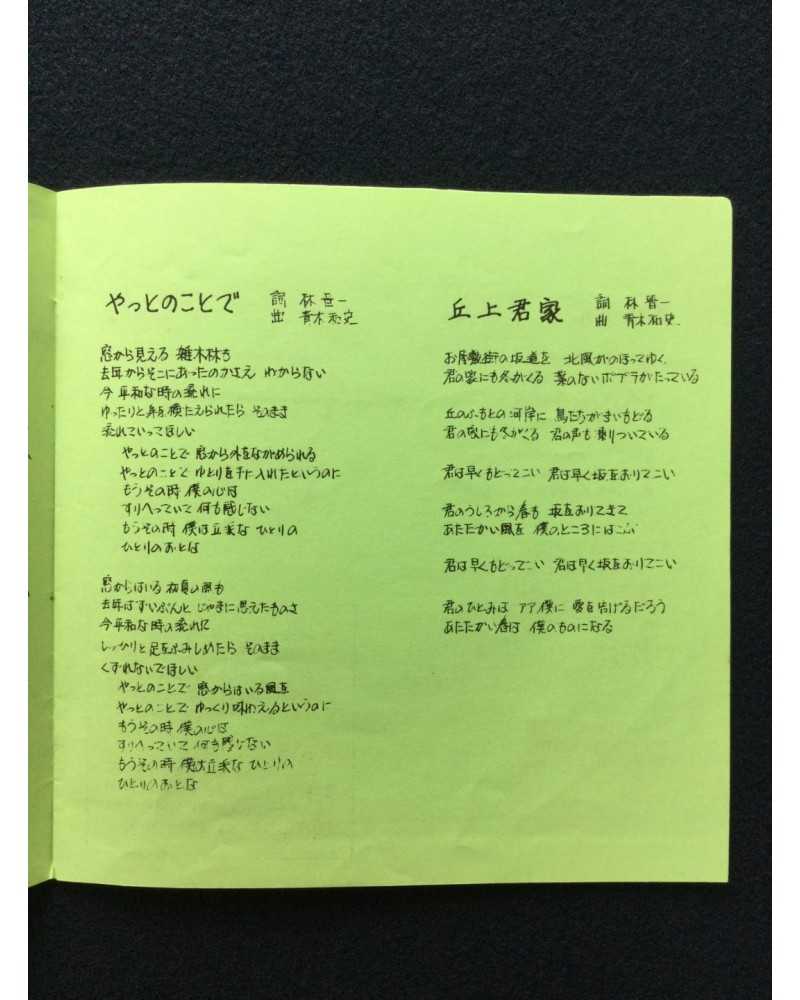 やっとのことで
詞 林 晋一
曲 青木和史
窓から見える 雑木林も
去年からそこにあったのかさえ わからない
今 平和な時の流れに
ゆったりと身を横たえられたら そのまま
流れていってほしい
やっとのことで 窓から外をながめられる
やっとのことで ゆとりを手に入れたというのに
もうその時 僕の心は
すりへっていて 何も感じない
もうその時 僕は立派な ひとりの
ひとりのおとな
窓からはいる 初夏の風も
去年はずいぶんと じゃまに思えたものさ
今 平和な時の流れに
しっかりと足をふみしめたら そのまま
くずれないでほしい
やっとのことで 窓からはいる風を
やっとのことで ゆっくり味わえるというのに
もうその時 僕の心は
すりへっていて 何も感じない
もうその時 僕は立派な ひとりの
ひとりのおとな
丘上君家
詞 林 晋一
曲 青木和史
お屋敷街の坂道を 北風がのぼってゆく
君の家にも冬がくる 葉のないポプラがたっている
丘のふもとの河岸に 鳥たちがまいもどる
君の家にも冬がくる 君の声も凍りついている
君は早くもどってこい 君は早く坂をおりてこい
君のうしろから春も 坂をおりてきて
あたたかい風を 僕のところにはこぶ
君は早くもどってこい 君は早く坂をおりてこい
君のひとみは アア 僕に 愛を告げるだろう
あたたかい春は 僕のものになる